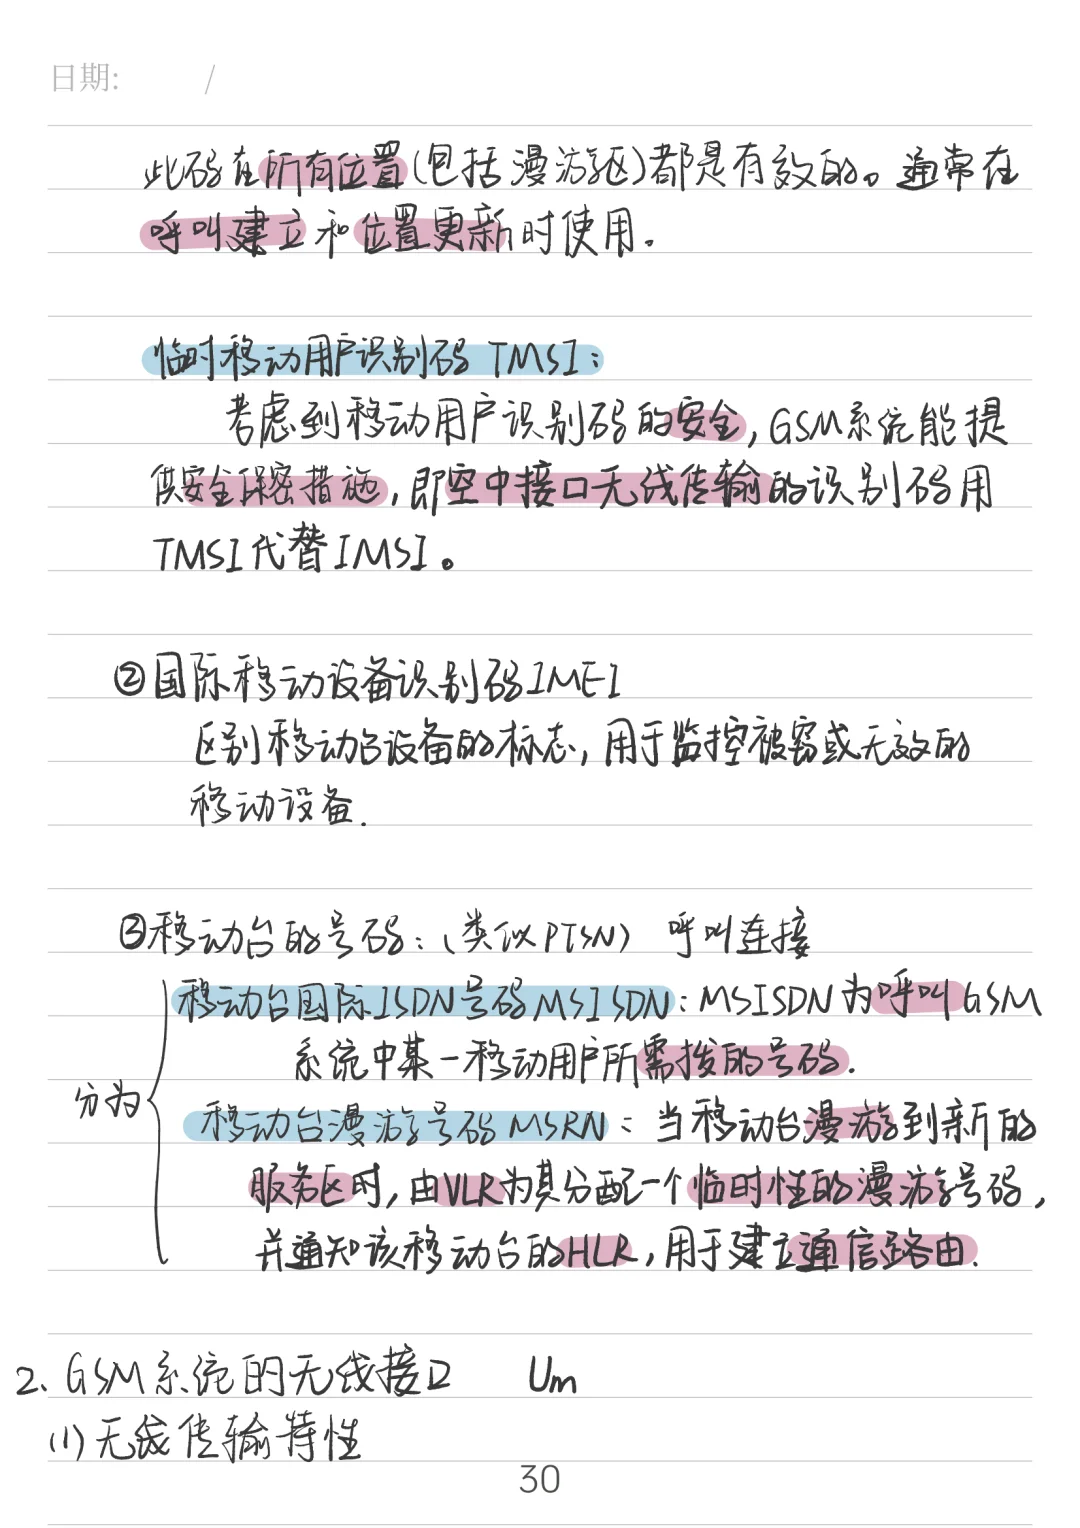 日期: /
此码在所有位置(包括漫游区)都是有效的。通常在
呼叫建立和位置更新时使用.
临时移动用户识别码 TMSI:
考虑到移动用户识别码的安全,GSM系统能提
供安全保密措施,即空中接口无线传输的识别码用
TMSI代替IMSI。
②国际移动设备识别码IMEI
区别移动台设备的标志,用于监控被窃或无效的
移动设备.
③移动台的号码:(类似PTSN) 呼叫连接
移动台国际ISDN号码MSISDN:MSISDN为呼叫GSM
系统中某一移动用户所需拨的号码.
分为
移动台漫游号码MSRN:当移动台漫游到新的
服务区时,由VLR为其分配一个临时性的漫游号码,
并通知该移动台的HLR,用于建立通信路由.
2、GSM系统的无线接口 Um
(1)无线传输特性
30